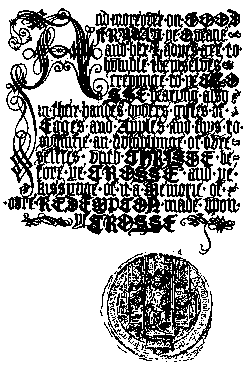 And moreover on GOOD
FRYDAY ye Queane
and her Ladyes are to
humble themselves
creepinge to ye CRO
SSE bearing also
in their handes divers giftes of
Egges and Apples and thus to
an of oure
selfes with CHRISTE be-
fore ye CROSSE and ye
kissynge of it a Memorie of
oure REDEMPCON made upon
ye CROSSE